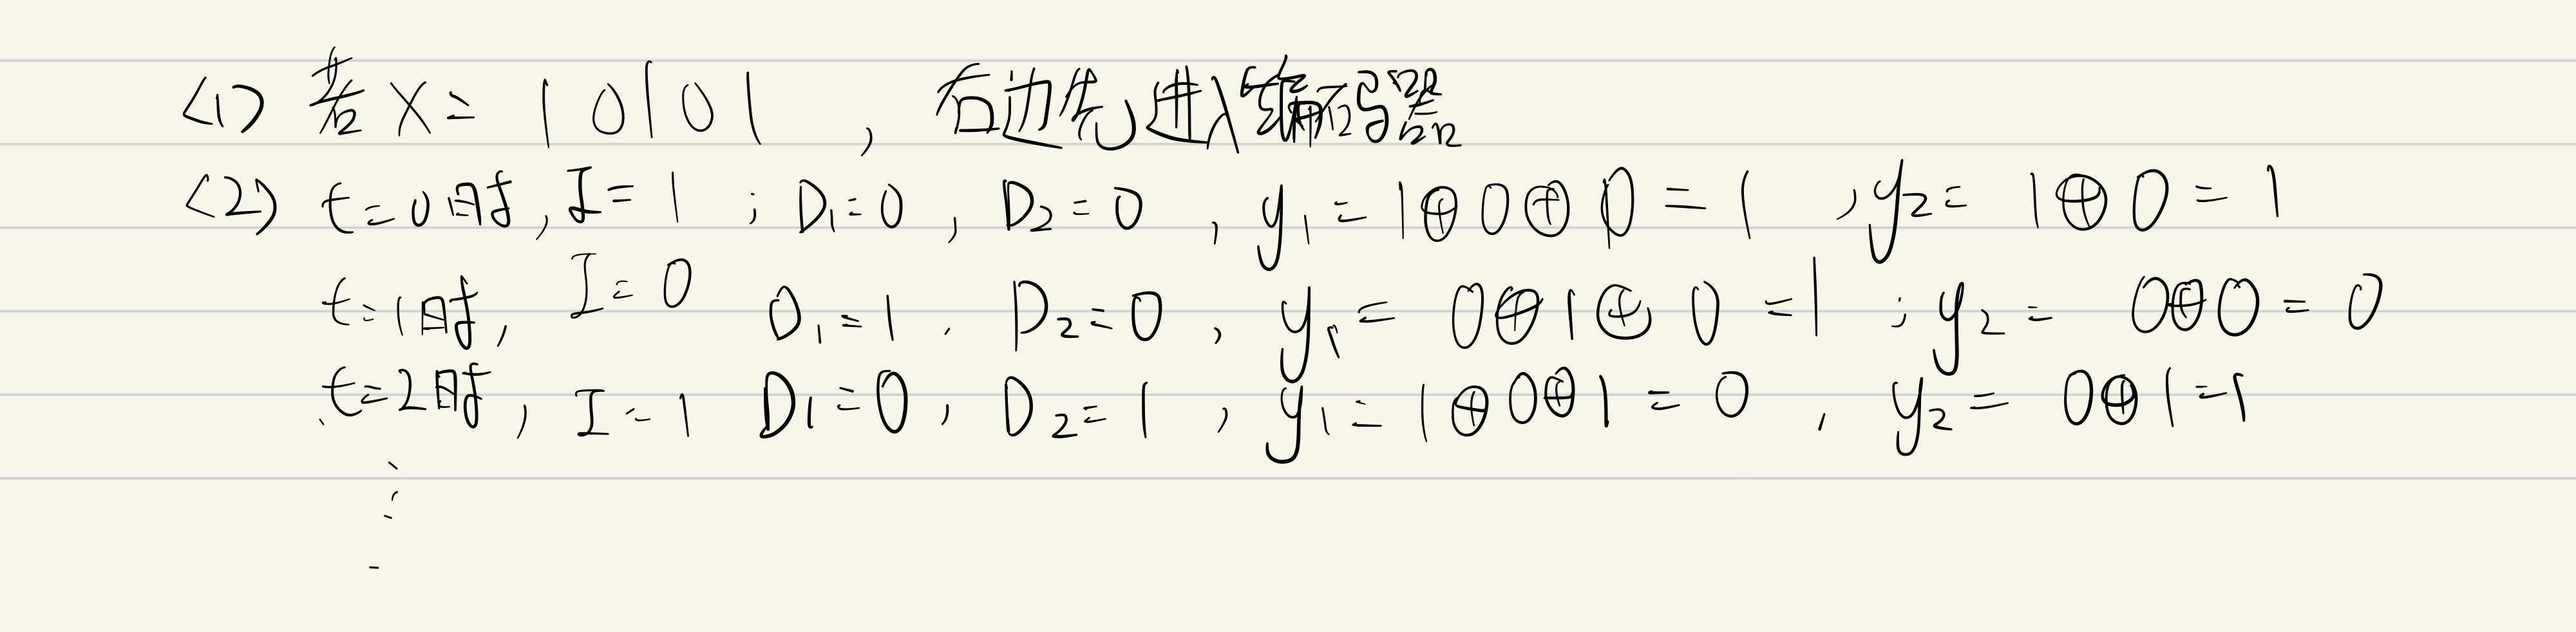 <1> 若 X = 10101 , 右边先进入编码器
<2> t=0时, I=1 ; D₁=0 , D₂=0 , y₁=1⊕0⊕0=1 , y₂=1⊕0=1
t=1时, I=0 D₁=1 . D₂=0 , y₁=0⊕1⊕0=1 ; y₂=0⊕0=0
t=2时, I=1 D₁=0 , D₂=1 , y₁=1⊕0⊕1=0 , y₂=0⊕1=1